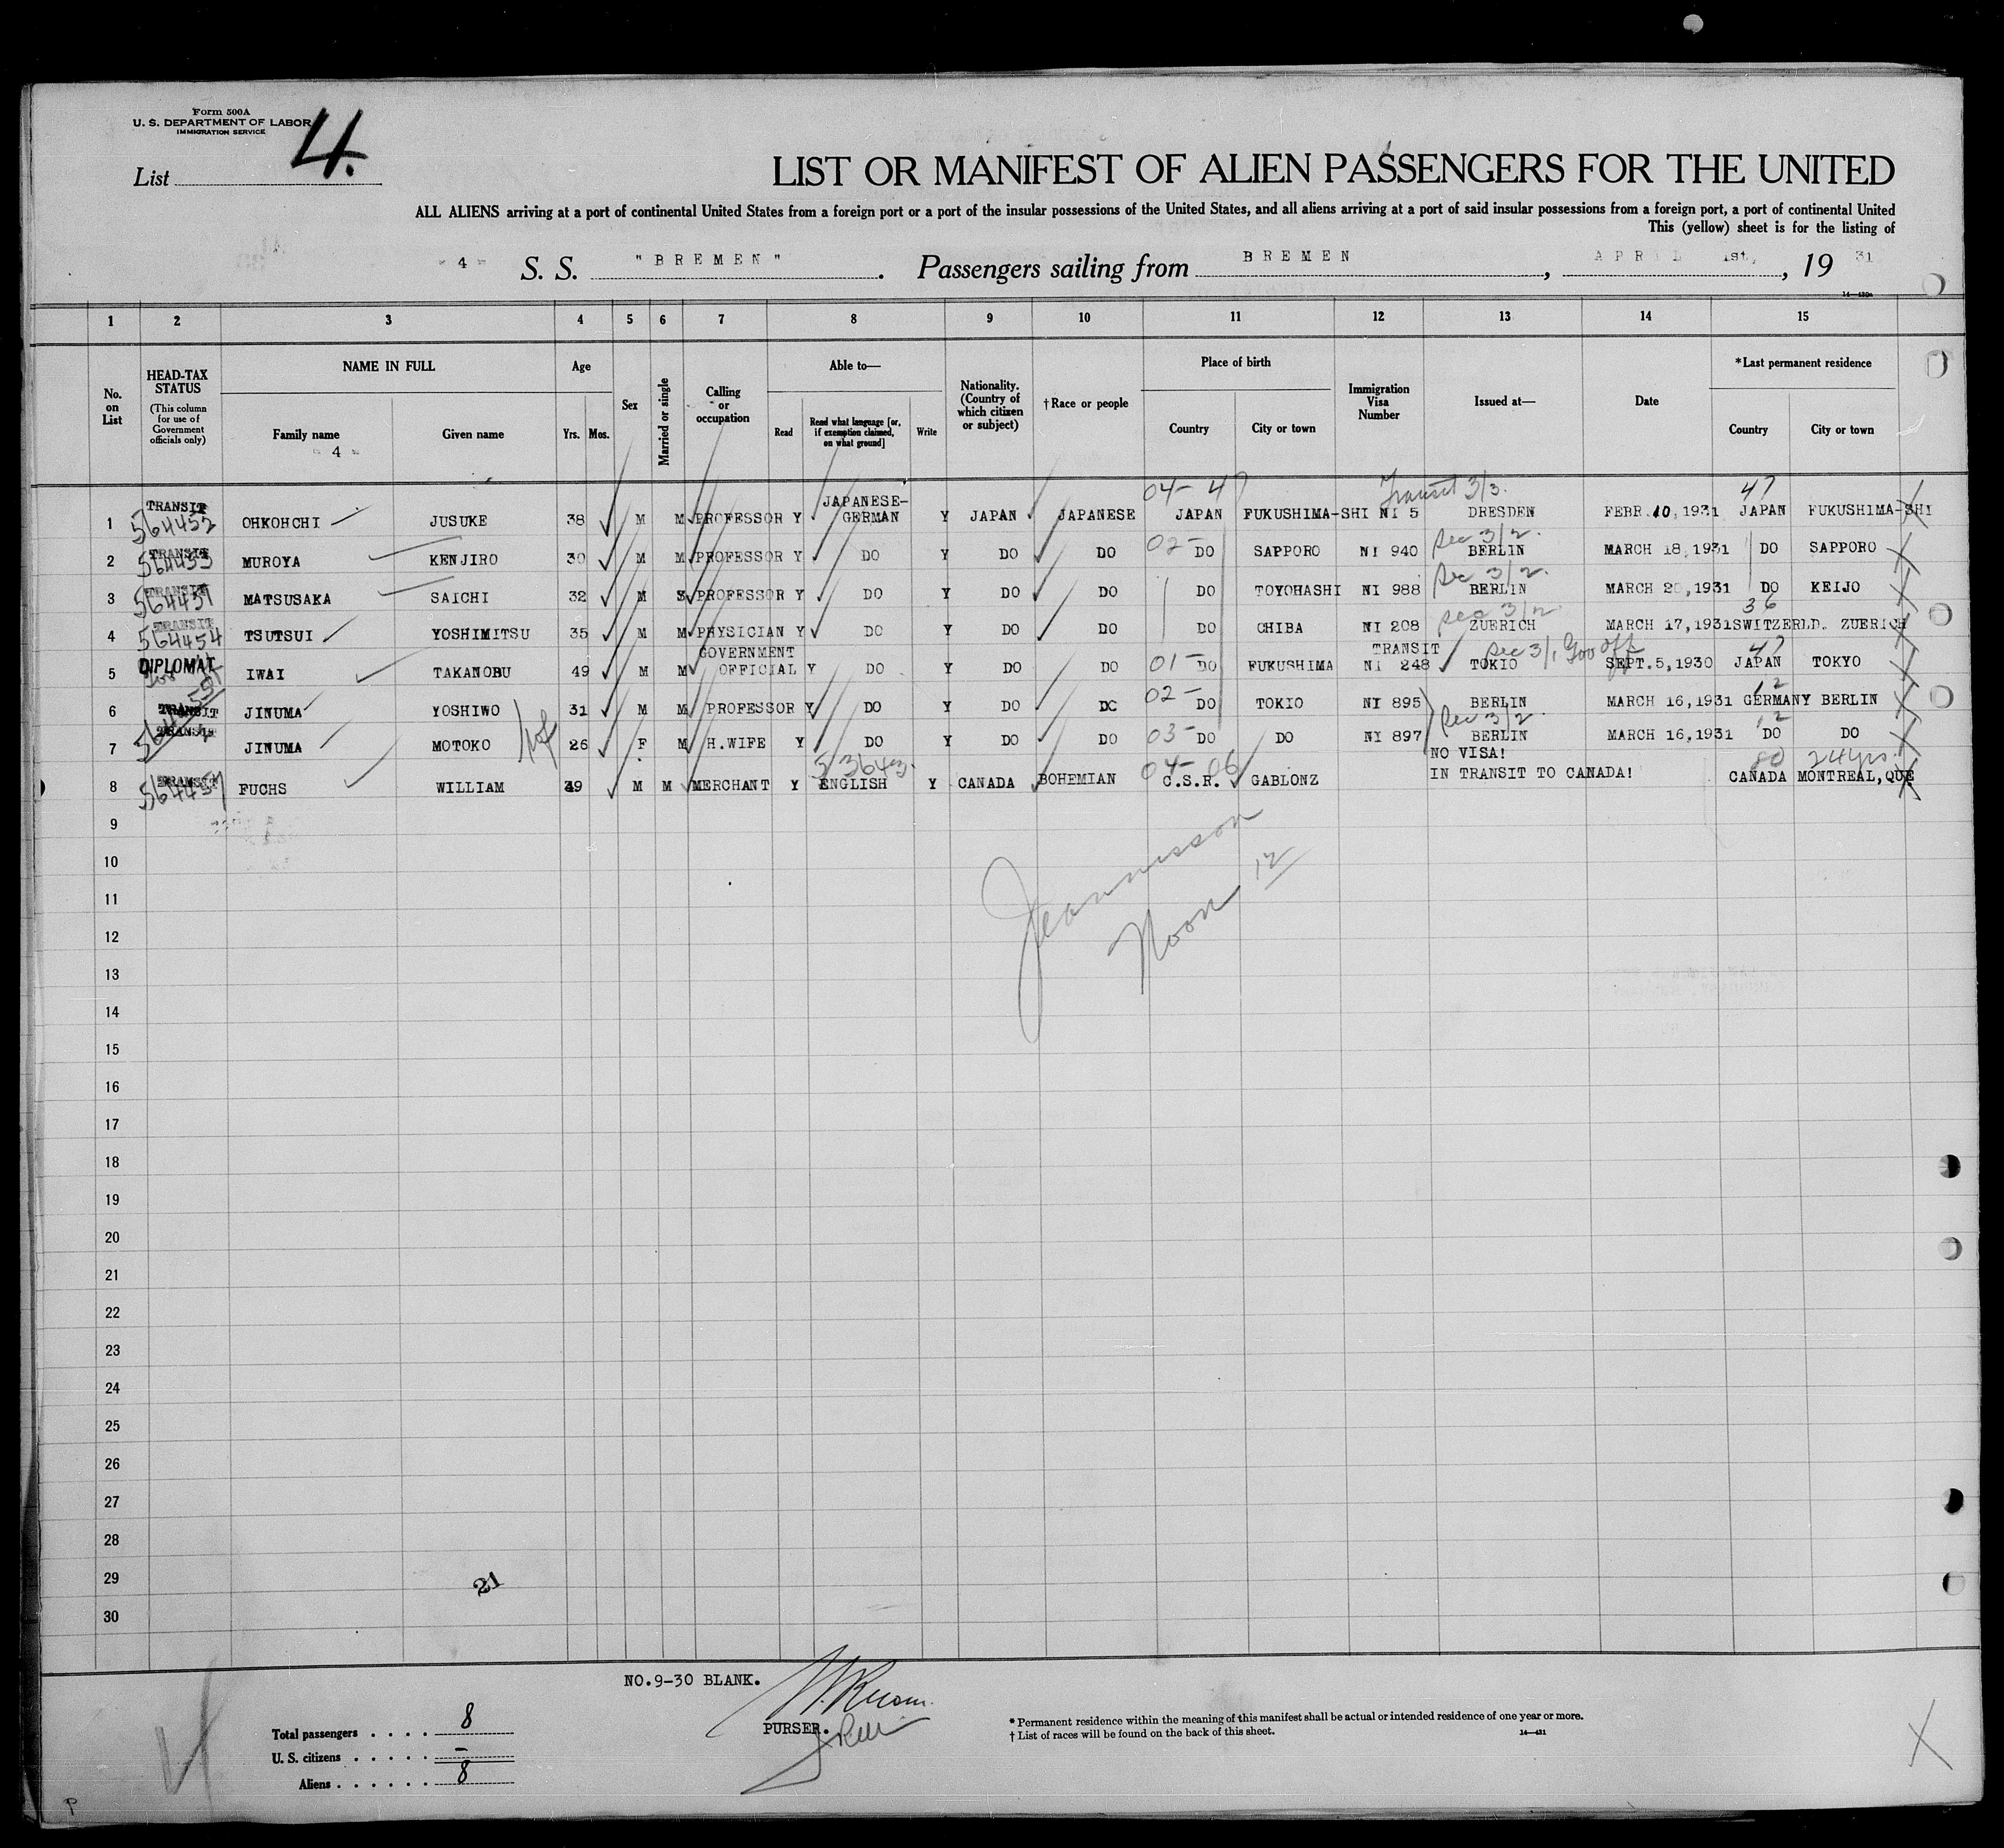 Form 500A
U. S. DEPARTMENT OF LABOR
IMMIGRATION SERVICE
List 4.
LIST OR MANIFEST OF ALIEN PASSENGERS FOR THE UNITED
ALL ALIENS arriving at a port of continental United States from a foreign port or a port of the insular possessions of the United States, and all aliens arriving at a port of said insular possessions from a foreign port, a port of continental United
This (yellow) sheet is for the listing of
- 4 - S. S. "BREMEN". Passengers sailing from BREMEN, APRIL 1st, 1931
14—430a
1 2 3 4 5 6 7 8 9 10 11 12 13 14 15
No. on List
HEAD-TAX STATUS
(This column for use of Government officials only)
NAME IN FULL
Family name Given name
- 4 -
Age
Yrs. Mos.
Sex
Married or single
Calling or occupation
Able to—
Read
Read what language [or, if exemption claimed, on what ground]
Write
Nationality. (Country of which citizen or subject)
† Race or people
Place of birth
Country City or town
Immigration Visa Number
Issued at—
Date
*Last permanent residence
Country City or town
04- 47 Transit 3/3. 47
1 TRANSIT 564452 OHKOHCHI JUSUKE 38 M M PROFESSOR Y JAPANESE-GERMAN Y JAPAN JAPANESE JAPAN FUKUSHIMA-SHI NI 5 DRESDEN FEBR.10,1931 JAPAN FUKUSHIMA-SHI
02- Sec 3/2.
2 TRANSIT 564453 MUROYA KENJIRO 30 M M PROFESSOR Y DO Y DO DO DO SAPPORO NI 940 BERLIN MARCH 18,1931 DO SAPPORO
Sec 3/2.
3 TRANSIT MATSUSAKA SAICHI 32 M S PROFESSOR Y DO Y DO DO DO TOYOHASHI NI 988 BERLIN MARCH 20,1931 DO KEIJO
Sec 3/2 36
4 TRANSIT 564454 TSUTSUI YOSHIMITSU 35 M M PHYSICIAN Y DO Y DO DO DO CHIBA NI 208 ZUERICH MARCH 17,1931 SWITZERLD. ZUERICH
01- Sec 3/1 Gov off 47
5 DIPLOMAT IWAI TAKANOBU 49 M M GOVERNMENT OFFICIAL Y DO Y DO DO DO FUKUSHIMA TRANSIT NI 248 TOKIO SEPT.5,1930 JAPAN TOKYO
02- 12
6 TRANSIT JINUMA YOSHIWO 31 M M PROFESSOR Y DO Y DO DO DO TOKIO NI 895 BERLIN MARCH 16,1931 GERMANY BERLIN
03- Sec 3/2. 12
7 TRANSIT JINUMA MOTOKO 26 F M H.WIFE Y DO Y DO DO DO DO NI 897 BERLIN MARCH 16,1931 DO DO
53643. 04- 06 80 24 yrs.
8 TRANSIT FUCHS WILLIAM 49 M M MERCHANT Y ENGLISH Y CANADA BOHEMIAN C.S.R. GABLONZ NO VISA! IN TRANSIT TO CANADA! CANADA MONTREAL,QUE
9
10
11
12
13
14
15
16
17
18
19
20
21
22
23
24
25
26
27
28
29
30
Noon 12
21
NO.9-30 BLANK.
PURSER.
Total passengers . . . . 8
U. S. citizens . . . . . –
Aliens . . . . . . 8
* Permanent residence within the meaning of this manifest shall be actual or intended residence of one year or more.
† List of races will be found on the back of this sheet.
14—431
P